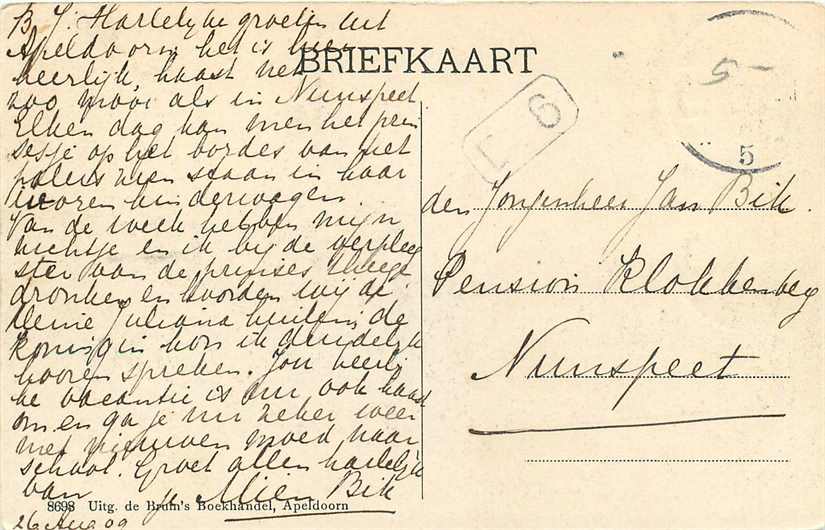 B. J. Hartelyke groeten uit
Apeldoorn het is hier
heerlijk, haast net
zoo mooi als in Nunspeet
Elken dag kan men het prin
sesje op het bordes van het
paleis zien staan in haar
ivoren kinderwagen.
Van de week hebben mijn
nichtje en ik bij de verpleeg
ster van de prinses thee ge
dronken en hoorden wij de
kleine Juliana huilen de
koningin kon ik duidelijk
hooren spreken. Jou heerlij
ke vacantie is nu ook haast
om en ga je nu zeker weer
met nieuwen moed naar
school. Groet allen hartelijk
van je Mien Bik
26 Aug 09
8698 Uitg. de Bruin's Boekhandel, Apeldoorn
BRIEFKAART
5
5
6
den Jongenheer Jan Bik.
Pension Klokkenberg
Nunspeet